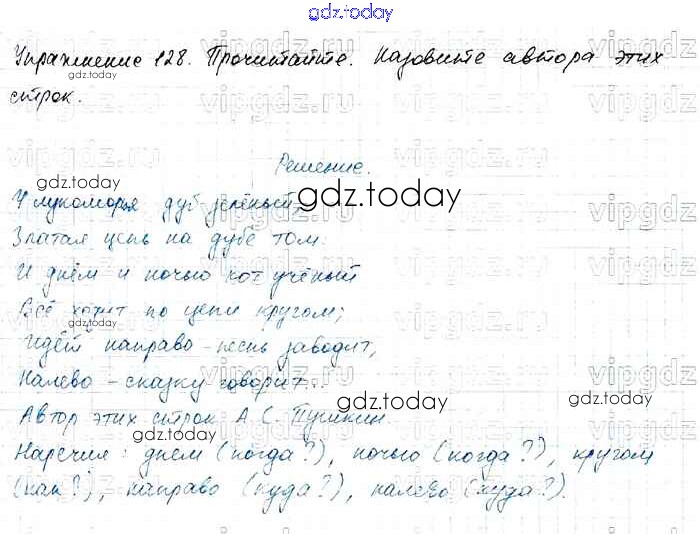 gdz.today
Упражнение 128. Прочитайте. Назовите автора этих
строк.
Решение.
gdz.today
У лукоморья дуб зелёный,
gdz.today
Златая цепь на дубе том:
И днём и ночью кот учёный
Всё ходит по цепи кругом;
gdz.today
Идёт направо - песнь заводит,
Налево - сказку говорит...
gdz.today
Автор этих строк А. С. Пушкин
gdz.today
Наречия: днём (когда?), ночью (когда?), кругом
(как?), направо (куда?), налево (куда?).
gdz.today
gdz.today
vipgdz.ru
vipgdz.ru
vipgdz.ru
vipgdz.ru